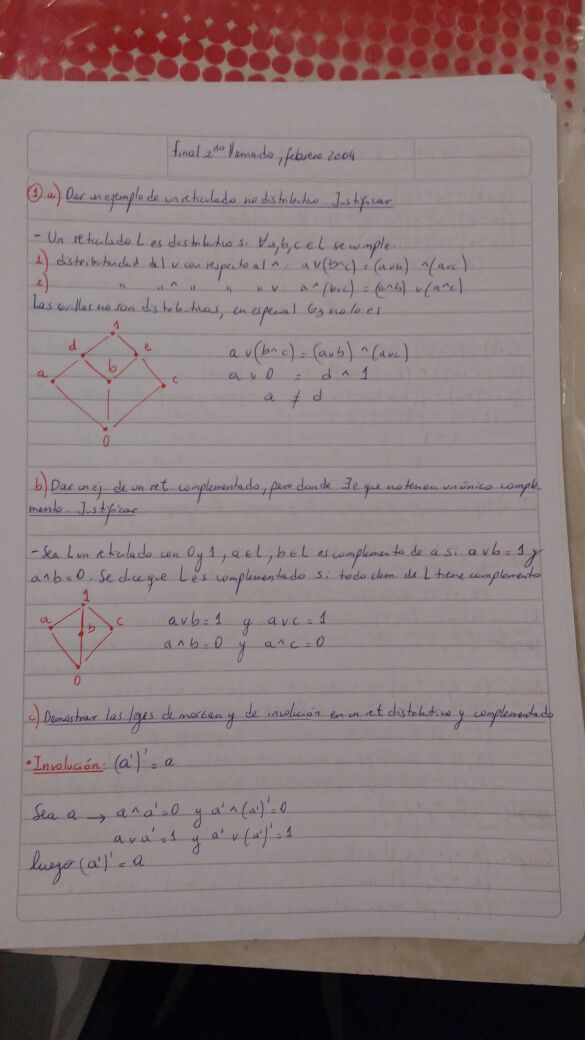 final 2do llamado, febrero 2004
① a) Dar un ejemplo de un reticulado no distributivo. Justificar
- Un reticulado L es distributivo si ∀a,b,c ∈ L se cumple:
1) distributividad del v con respecto al ^: a v (b^c) = (avb) ^ (avc)
2) " " ^ " " " v: a^(bvc) = (a^b) v (a^c)
Las grillas no son distributivas, en especial G3 no lo es
1
d e
a b c
0
a v (b^c) = (avb) ^ (avc)
a v 0 = d ^ 1
a ≠ d
b) Dar un ej. de un ret. complementado, pero donde ∃ e que no tenga un único comple-
mento. Justificar
- Sea L un reticulado con 0 y 1, a∈L, b∈L es complemento de a si avb=1 y
a^b=0. Se dice que L es complementado si todo elem. de L tiene complemento
1
a b c
0
avb=1 y avc=1
a^b=0 y a^c=0
c) Demostrar las leyes de morgan y de involución en un ret distributivo y complementado
• Involución: (a')' = a
Sea a → a^a'=0 y a'^(a')'=0
ava'=1 y a'v(a')'=1
luego (a')' = a